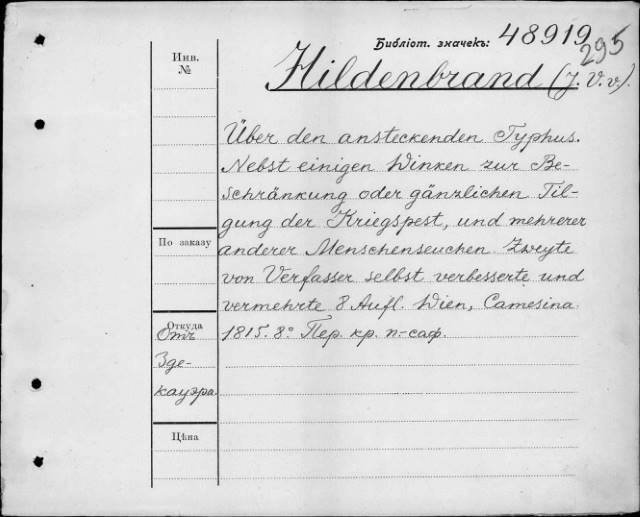 Библіот. значекъ: 48919
295
Инв.
№
Hildenbrand (J. V. v).
Über den ansteckenden Typhus.
Nebst einigen Winken zur Be-
schränkung oder gänzlichen Til-
gung der Kriegspest, und mehrerer
По заказу
anderer Menschenseuchen Zweyte
von Verfasser selbst verbesserte und
vermehrte 8 Aufl. Wien, Camesina
Откуда
Отъ
1815. 8° Пер. кр. п-саф.
Зде-
кауэра
Цѣна